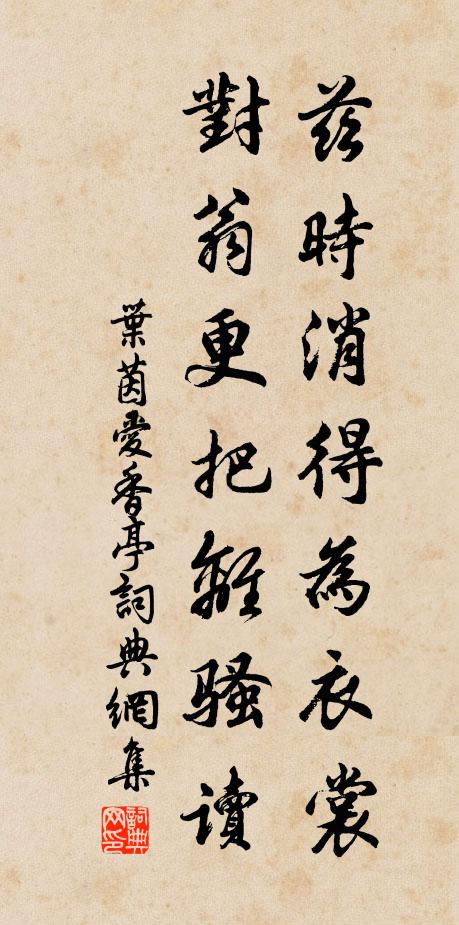 茲時消得為衣裳
對翁更把離騷讀
葉茵愛香亭詞典網集
詞典网印